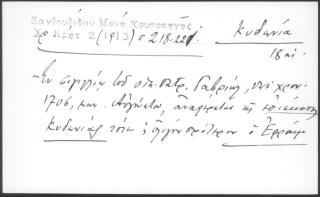 Ξανθουδίδου Μονή Χρυσοπηγής
Χρ Κρητ 2 (1913) σ 218-221.
Κυδωνία
18 αι.
Εν σιγιλλίῳ τοῦ οἰκ. πατρ. Γαβριήλ, υπό χρον.
1706, μην. Αὐγούστου, ἀναφέρεται ὡς ἐπίσκοπος
Κυδωνίας τότε ὀλίγον πρότερον ὁ Ἐφραίμ